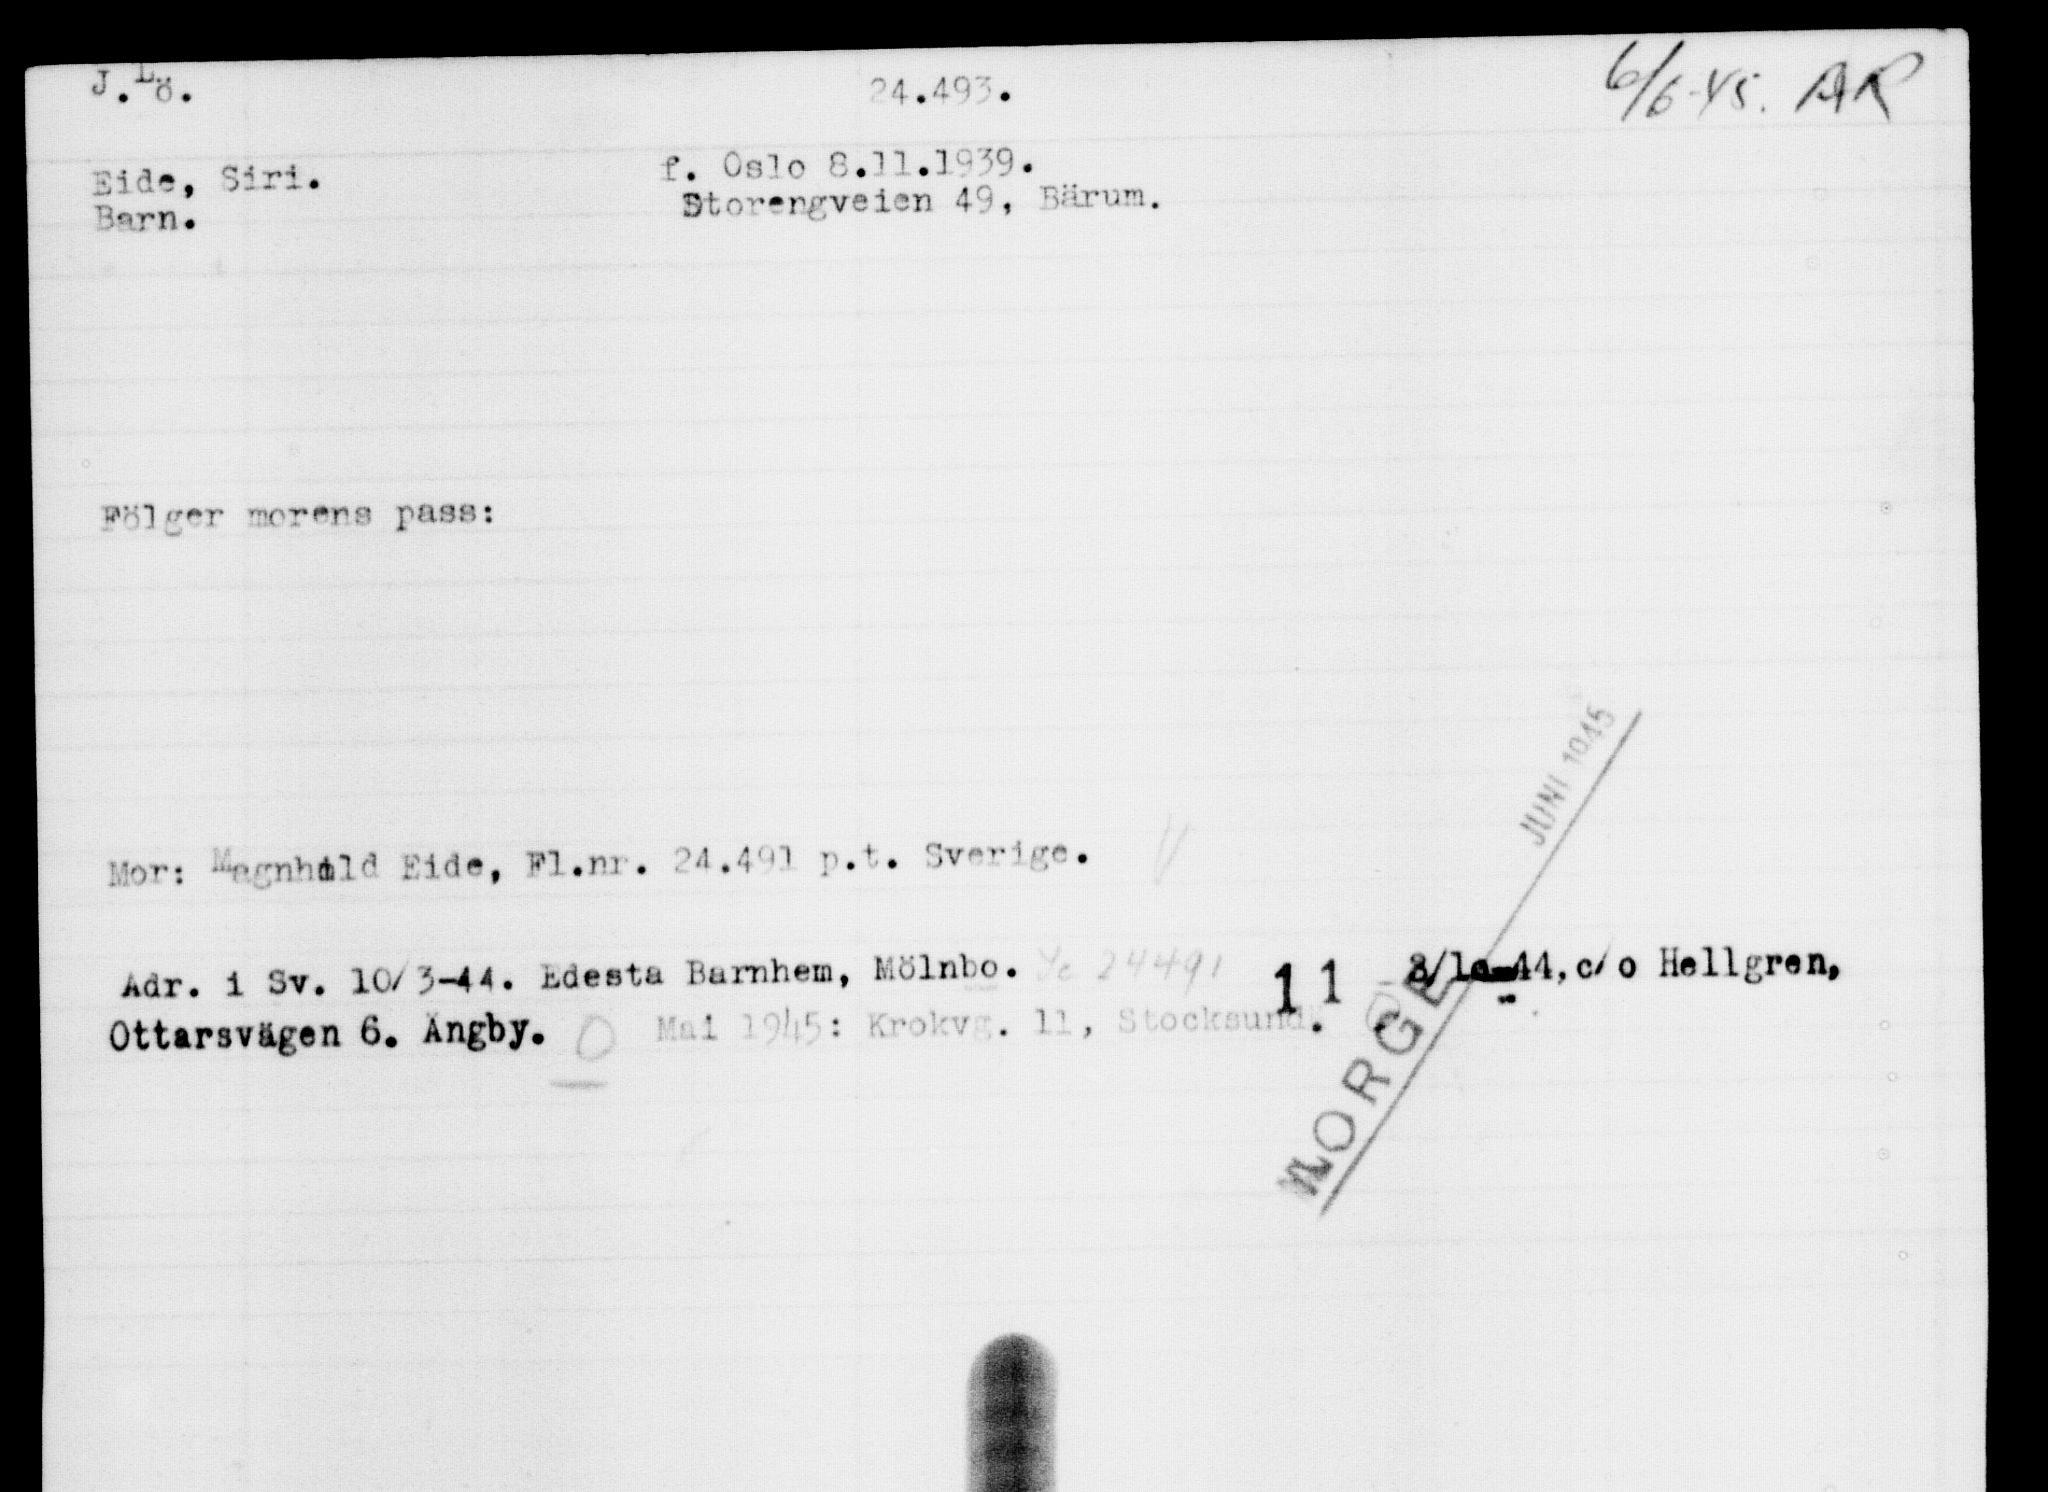 J. Lö. 24.493. 6/6-45. AR
Eide, Siri. f. Oslo 8.11.1939.
Barn. Storengveien 49, Bärum.
Fölger morens pass:
JUNI 1945
Mor: Magnhild Eide, Fl.nr. 24.491 p.t. Sverige.
Adr. i Sv. 10/3-44. Edesta Barnhem, Mölnbo. 24491 11 44, c/o Hellgren,
Ottarsvägen 6. Ängby. Mai 1945: Krokvg. 11, Stocksund.
NORGE